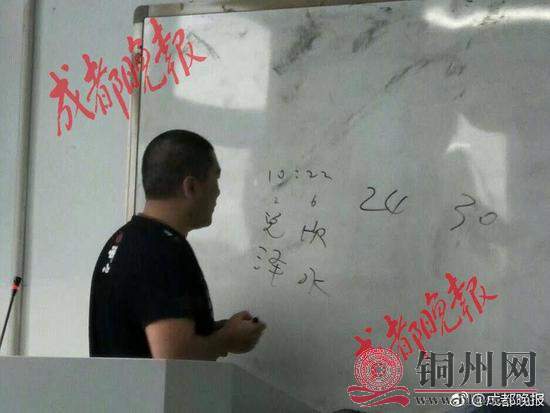 成都晚报
10:22
2 6
兑 坎
泽 水
24 30
成都晚报
铜州网
@成都晚报